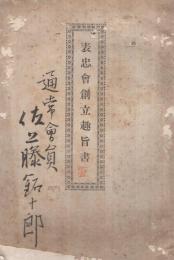 表忠會創立趣旨書
通常會員
佐藤鉐十郎